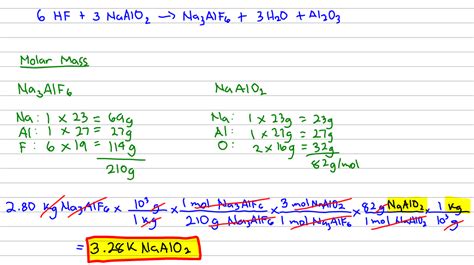 6 HF + 3 NaAlO₂ → Na₃AlF₆ + 3H₂O + Al₂O₃
Molar Mass
Na₃AlF₆
Na: 1 x 23 = 69g
Al: 1 x 27 = 27g
F: 6 x 19 = 114g
210g
NaAlO₂
Na: 1 x 23g = 23g
Al: 1 x 27g = 27g
O: 2 x 16g = 32g
82g/mol
2.80 kg Na₃AlF₆ x 10³ g / 1 kg x 1 mol Na₃AlF₆ / 210 g Na₃AlF₆ x 3 mol NaAlO₂ / 1 mol Na₃AlF₆ x 82g NaAlO₂ / 1 mol NaAlO₂ x 1 kg / 10³ g
= 3.28K NaAlO₂